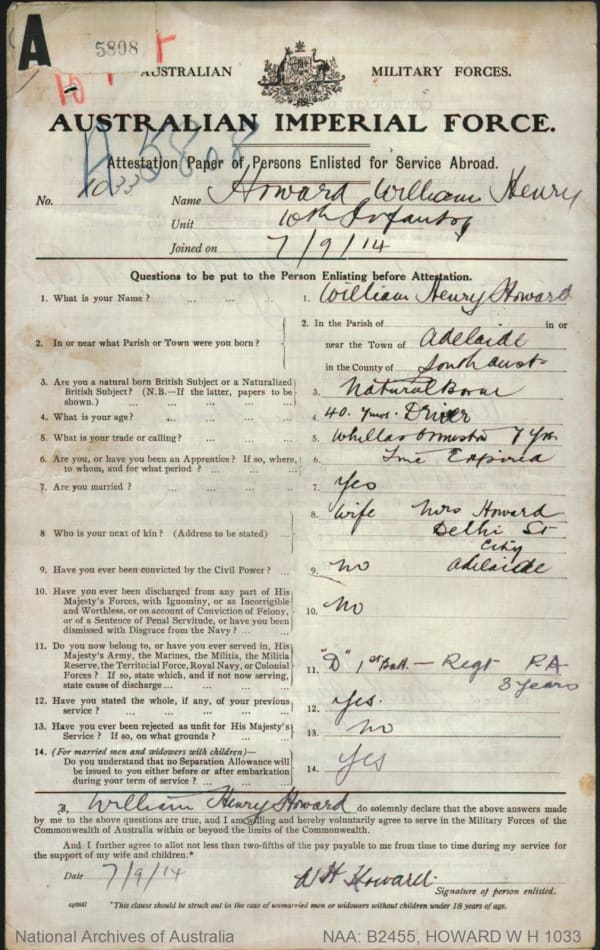 A
5808
AUSTRALIAN MILITARY FORCES.
AUSTRALIAN IMPERIAL FORCE.
A5808
Attestation Paper of Persons Enlisted for Service Abroad.
No. 1033 Name Howard William Henry
Unit 10th Infantry
Joined on 7/9/14
Questions to be put to the Person Enlisting before Attestation.
1. What is your Name? ... ... ... 1. William Henry Howard
2. In or near what Parish or Town were you born? ... 2. In the Parish of in or
near the Town of Adelaide
in the County of South Aust
3. Are you a natural born British Subject or a Naturalized
British Subject? (N.B.—If the latter, papers to be
shown.) ... ... ... ... 3. Natural Borne
4. What is your age? ... ... ... 4. 40. yrs. Driver
5. What is your trade or calling? ... ... 5. 7 Yrs
6. Are you, or have you been an Apprentice? If so, where,
to whom, and for what period? ... ... 6. Time Expired
7. Are you married? ... ... ... 7. Yes
8 Who is your next of kin? (Address to be stated) ... 8. Wife Mrs Howard
Delhi St
City
Adelaide
9. Have you ever been convicted by the Civil Power? ... 9. No
10. Have you ever been discharged from any part of His
Majesty's Forces, with Ignominy, or as Incorrigible
and Worthless, or on account of Conviction of Felony,
or of a Sentence of Penal Servitude, or have you been
dismissed with Disgrace from the Navy? ... ... 10. No
11. Do you now belong to, or have you ever served in, His
Majesty's Army, the Marines, the Militia, the Militia
Reserve, the Territorial Force, Royal Navy, or Colonial
Forces? If so, state which, and if not now serving,
state cause of discharge ... ... ... 11. "D" 1st Batt. — Regt P.A
3 years
12. Have you stated the whole, if any, of your previous
service? ... ... ... ... 12. Yes.
13. Have you ever been rejected as unfit for His Majesty's
Service? If so, on what grounds? ... ... 13. No
14. (For married men and widowers with children)—
Do you understand that no Separation Allowance will
be issued to you either before or after embarkation
during your term of service? ... ... 14. Yes
I, William Henry Howard do solemnly declare that the above answers made
by me to the above questions are true, and I am willing and hereby voluntarily agree to serve in the Military Forces of the
Commonwealth of Australia within or beyond the limits of the Commonwealth.
And I further agree to allot not less than two-fifths of the pay payable to me from time to time during my service for
the support of my wife and children.*
Date 7/9/14 W H Howard.
Signature of person enlisted.
*This clause should be struck out in the case of unmarried men or widowers without children under 18 years of age.
National Archives of Australia NAA: B2455, HOWARD W H 1033